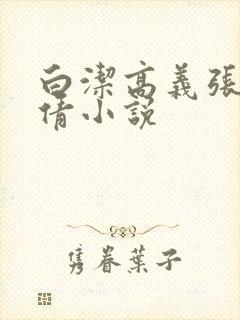 白潔高義張
倩小説
隽眷葉子